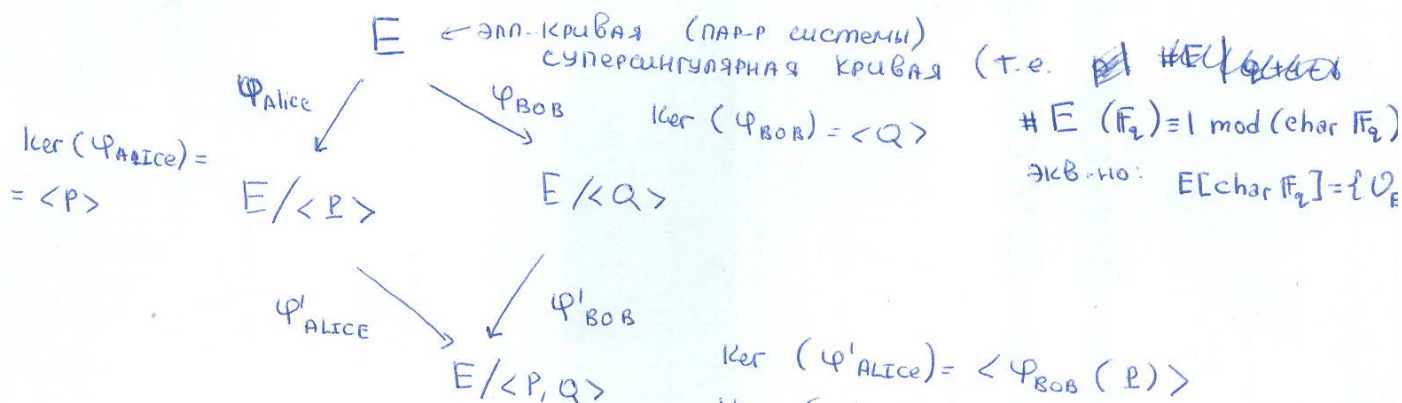 E ← элл. кривая (пар-р системы)
суперсингулярная кривая (т.е.
φAlice φBOB Ker (φBOB) = <Q> # E (𝔽q) ≡ 1 mod (char 𝔽q)
Ker (φALICE) =
= <P> E/<P> E/<Q> экв-но: E[char 𝔽q] = {OE
φ'ALICE φ'BOB
E/<P, Q> Ker (φ'ALICE) = <φBOB (P)>